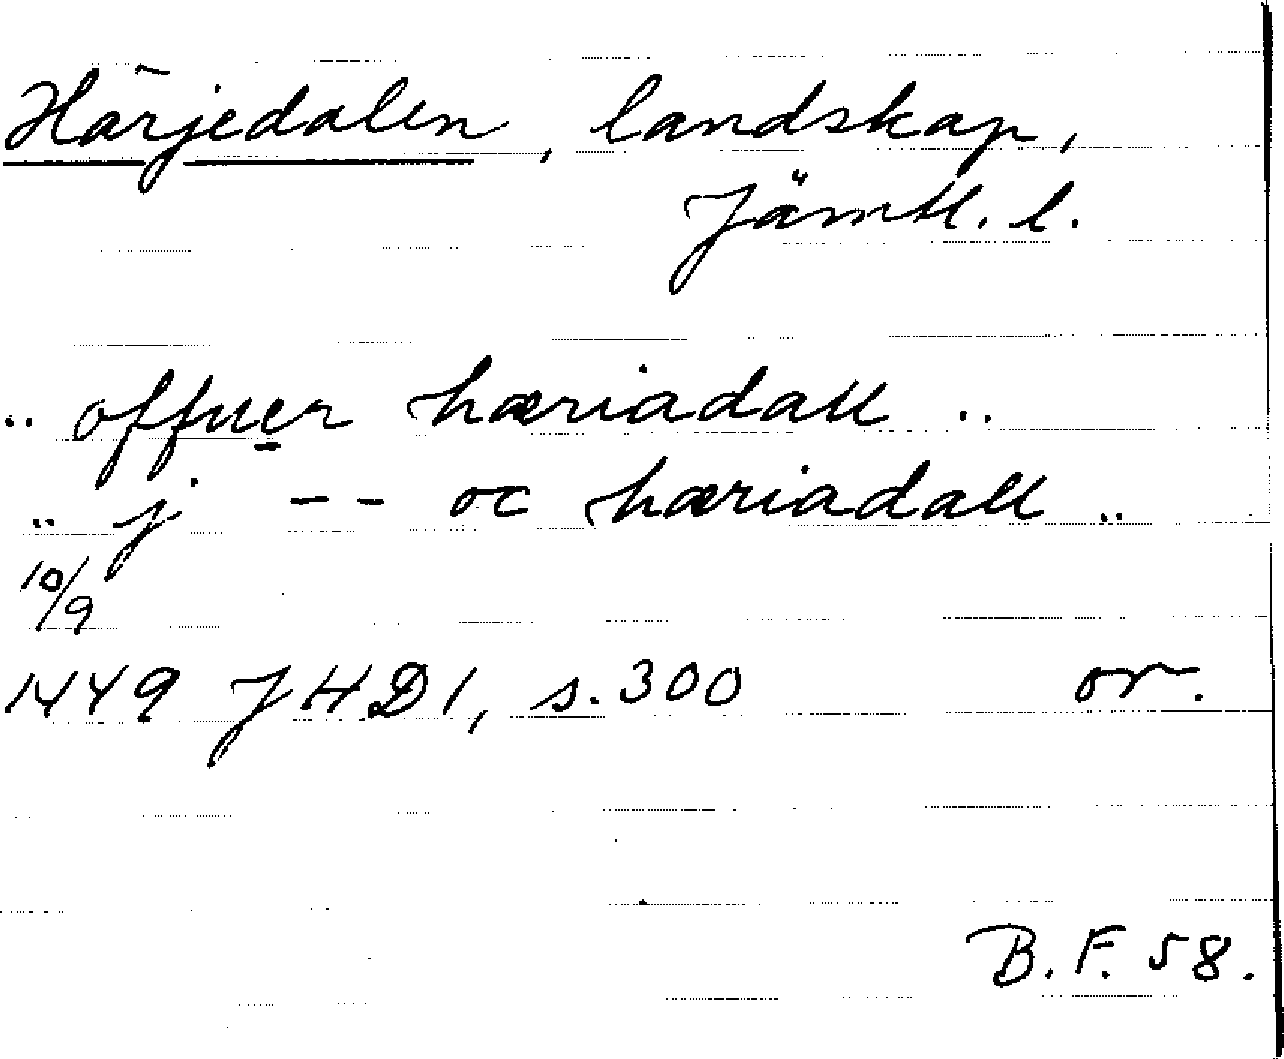 Härjedalen, landskap,
Jämtl. l.
.. offuer hæriadall ..
.. j -- oc hæriadall ..
10/9
1449 JHD1, s. 300 or.
B. F. 58.